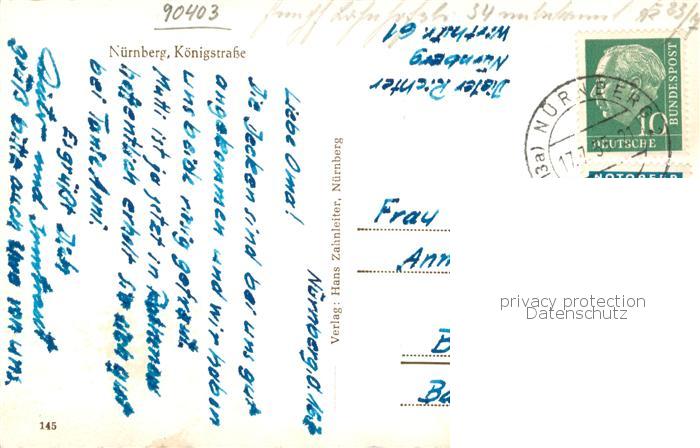 90403
34 unbekannt
Nürnberg, Königstraße
Dieter Richter
Nürnberg
Wirthstr. 61
DEUTSCHE
BUNDESPOST
10
NÜRNBERG
(13a)
17.7.
NOTOPFER
Nürnberg, d. 16.7.
Liebe Oma!
Die Decken sind bei uns gut
angekommen und wir haben
uns beide riesig gefreut.
Mutti ist ja jetzt in
hoffentlich erholt sie sich gut
bei Tante Anni.
Es grüßt Dich
Dieter und Irmtraut
grüße bitte auch Uwe von uns.
Verlag: Hans Zahnleiter, Nürnberg
Frau
Ann
B
Ba
145
privacy protection
Datenschutz